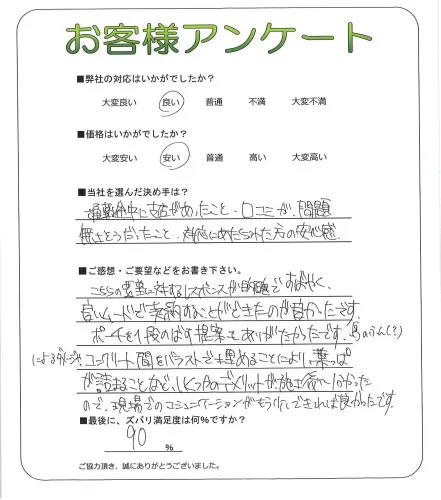 お客様アンケート
■弊社の対応はいかがでしたか？
大変良い 良い 普通 不満 大変不満
■価格はいかがでしたか？
大変安い 安い 普通 高い 大変高い
■当社を選んだ決め手は？
通勤途中に支店があったこと・口コミが、問題
無さそうだったこと、対応にあたられた方の安心感
■ご感想・ご要望などをお書き下さい。
こちらの要望に対するレスポンスが明確ですばやく、
良いムードで契約することができたのが良かったです
ポーチを1段のばす提案もありがたかったです。鳥のふん(?)
によるダメージ、コンクリート間をバラストで埋めることにより、葉っぱ
が詰まることなど、いくつかのデメリットが施工後に分かった
ので、現場でのコミュニケーションがもう少しできれば良かったです。
■最後に、ズバリ満足度は何%ですか？
90 %
ご協力頂き、誠にありがとうございました。